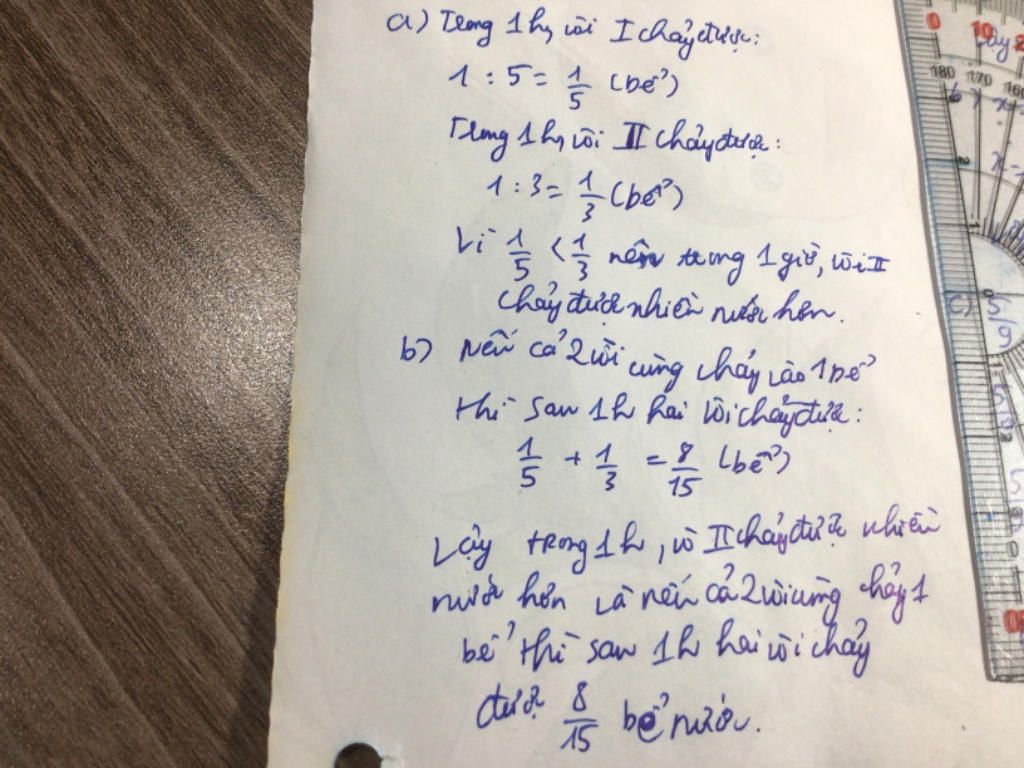 a) Trong 1h, vòi I chảy được:
1 : 5 = 1/5 (bể)
Trong 1h, vòi II chảy được:
1 : 3 = 1/3 (bể)
Vì 1/5 < 1/3 nên trong 1 giờ, vòi II
chảy được nhiều nước hơn.
b) Nếu cả 2 vòi cùng chảy vào 1 bể
thì sau 1h hai vòi chảy được:
1/5 + 1/3 = 8/15 (bể)
Vậy trong 1h, vò II chảy được nhiều
nước hơn và nếu cả 2 vòi cùng chảy 1
bể thì sau 1h hai vòi chảy
được 8/15 bể nước.
0 10 2
180 170 160